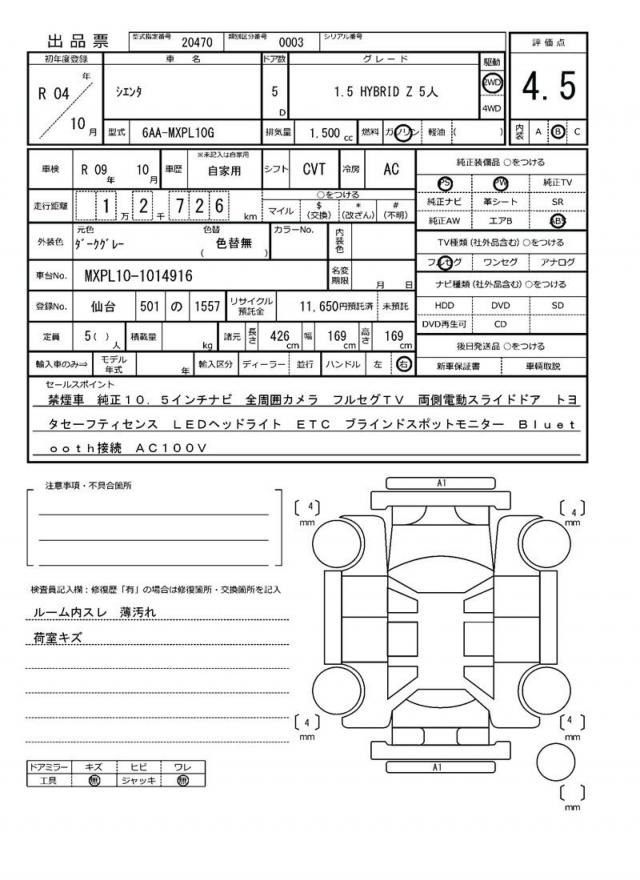 出品票 型式指定番号 20470 類別区分番号 0003 シリアル番号
評価点
4.5
初年度登録 車名 ドア数 グレード 駆動
R 04 年 10 月
シエンタ 5 D 1.5 HYBRID Z 5人 2WD
4WD
型式 6AA-MXPL10G 排気量 1,500 cc 燃料 ガソリン 軽油 ( )
内装 A B C
車検 R 09 年 10 月 車歴 ※未記入は自家用 自家用 シフト CVT 冷房 AC
走行距離 1 万 2 千 7 2 6 km
○をつける
マイル $ (交換) * (改ざん) # (不明)
外装色 元色 ダークグレー 色替 ( 色替無 ) カラーNo. 内装色
車台No. MXPL10-1014916 名変期限 月 日
登録No. 仙台 501 の 1557 リサイクル預託金 11,650円預託済 未預託
定員 5( ) 人 積載量 kg 諸元 長さ 426 cm 幅 169 cm 高さ 169 cm
輸入車のみ⇒ モデル年式 年 輸入区分 ディーラー 並行 ハンドル 左 右
純正装備品 ○をつける
PS PW 純正TV
純正ナビ 革シート SR
純正AW エアB ABS
TV種類(社外品含む) ○をつける
フルセグ ワンセグ アナログ
ナビ種類(社外品含む) ○をつける
HDD DVD SD
DVD再生可 CD
後日発送品 ○をつける
新車保証書 車輌取説
セールスポイント
禁煙車 純正10.5インチナビ 全周囲カメラ フルセグTV 両側電動スライドドア トヨ
タセーフティセンス LEDヘッドライト ETC ブラインドスポットモニター Bluet
ooth接続 AC100V
注意事項・不具合箇所
検査員記入欄:修復歴「有」の場合は修復箇所・交換箇所を記入
ルーム内スレ 薄汚れ
荷室キズ
ドアミラー キズ ヒビ ワレ
工具 無 ジャッキ 無
A1
[ 4 ] mm
[ 4 ] mm
[ 4 ] mm
[ 4 ] mm
A1
[ ] mm